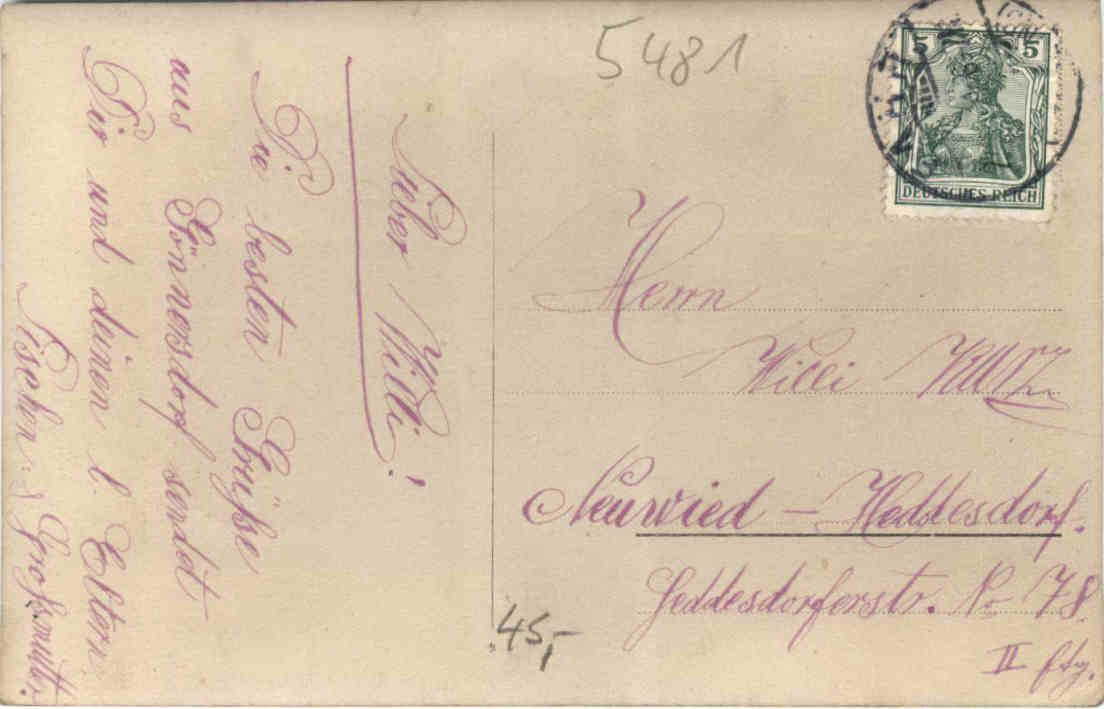 5481
5 5
DEUTSCHES REICH
Lieber Willi!
Die besten Grüsse
aus Gönnersdorf sendet
Dir und deinen l. Eltern
Großmutter.
Herrn
Willi Kurz
Neuwied – Heddesdorf.
Heddesdorferstr. No 78.
II Etg.
45,-